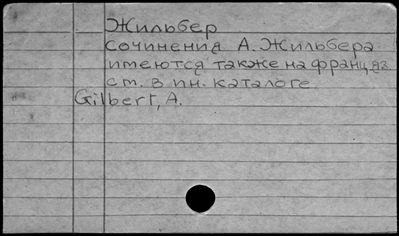 Жильбер
сочинения А. Жильбера
имеются также на франц. яз.
см. в ин. каталоге
Gilbert, A.